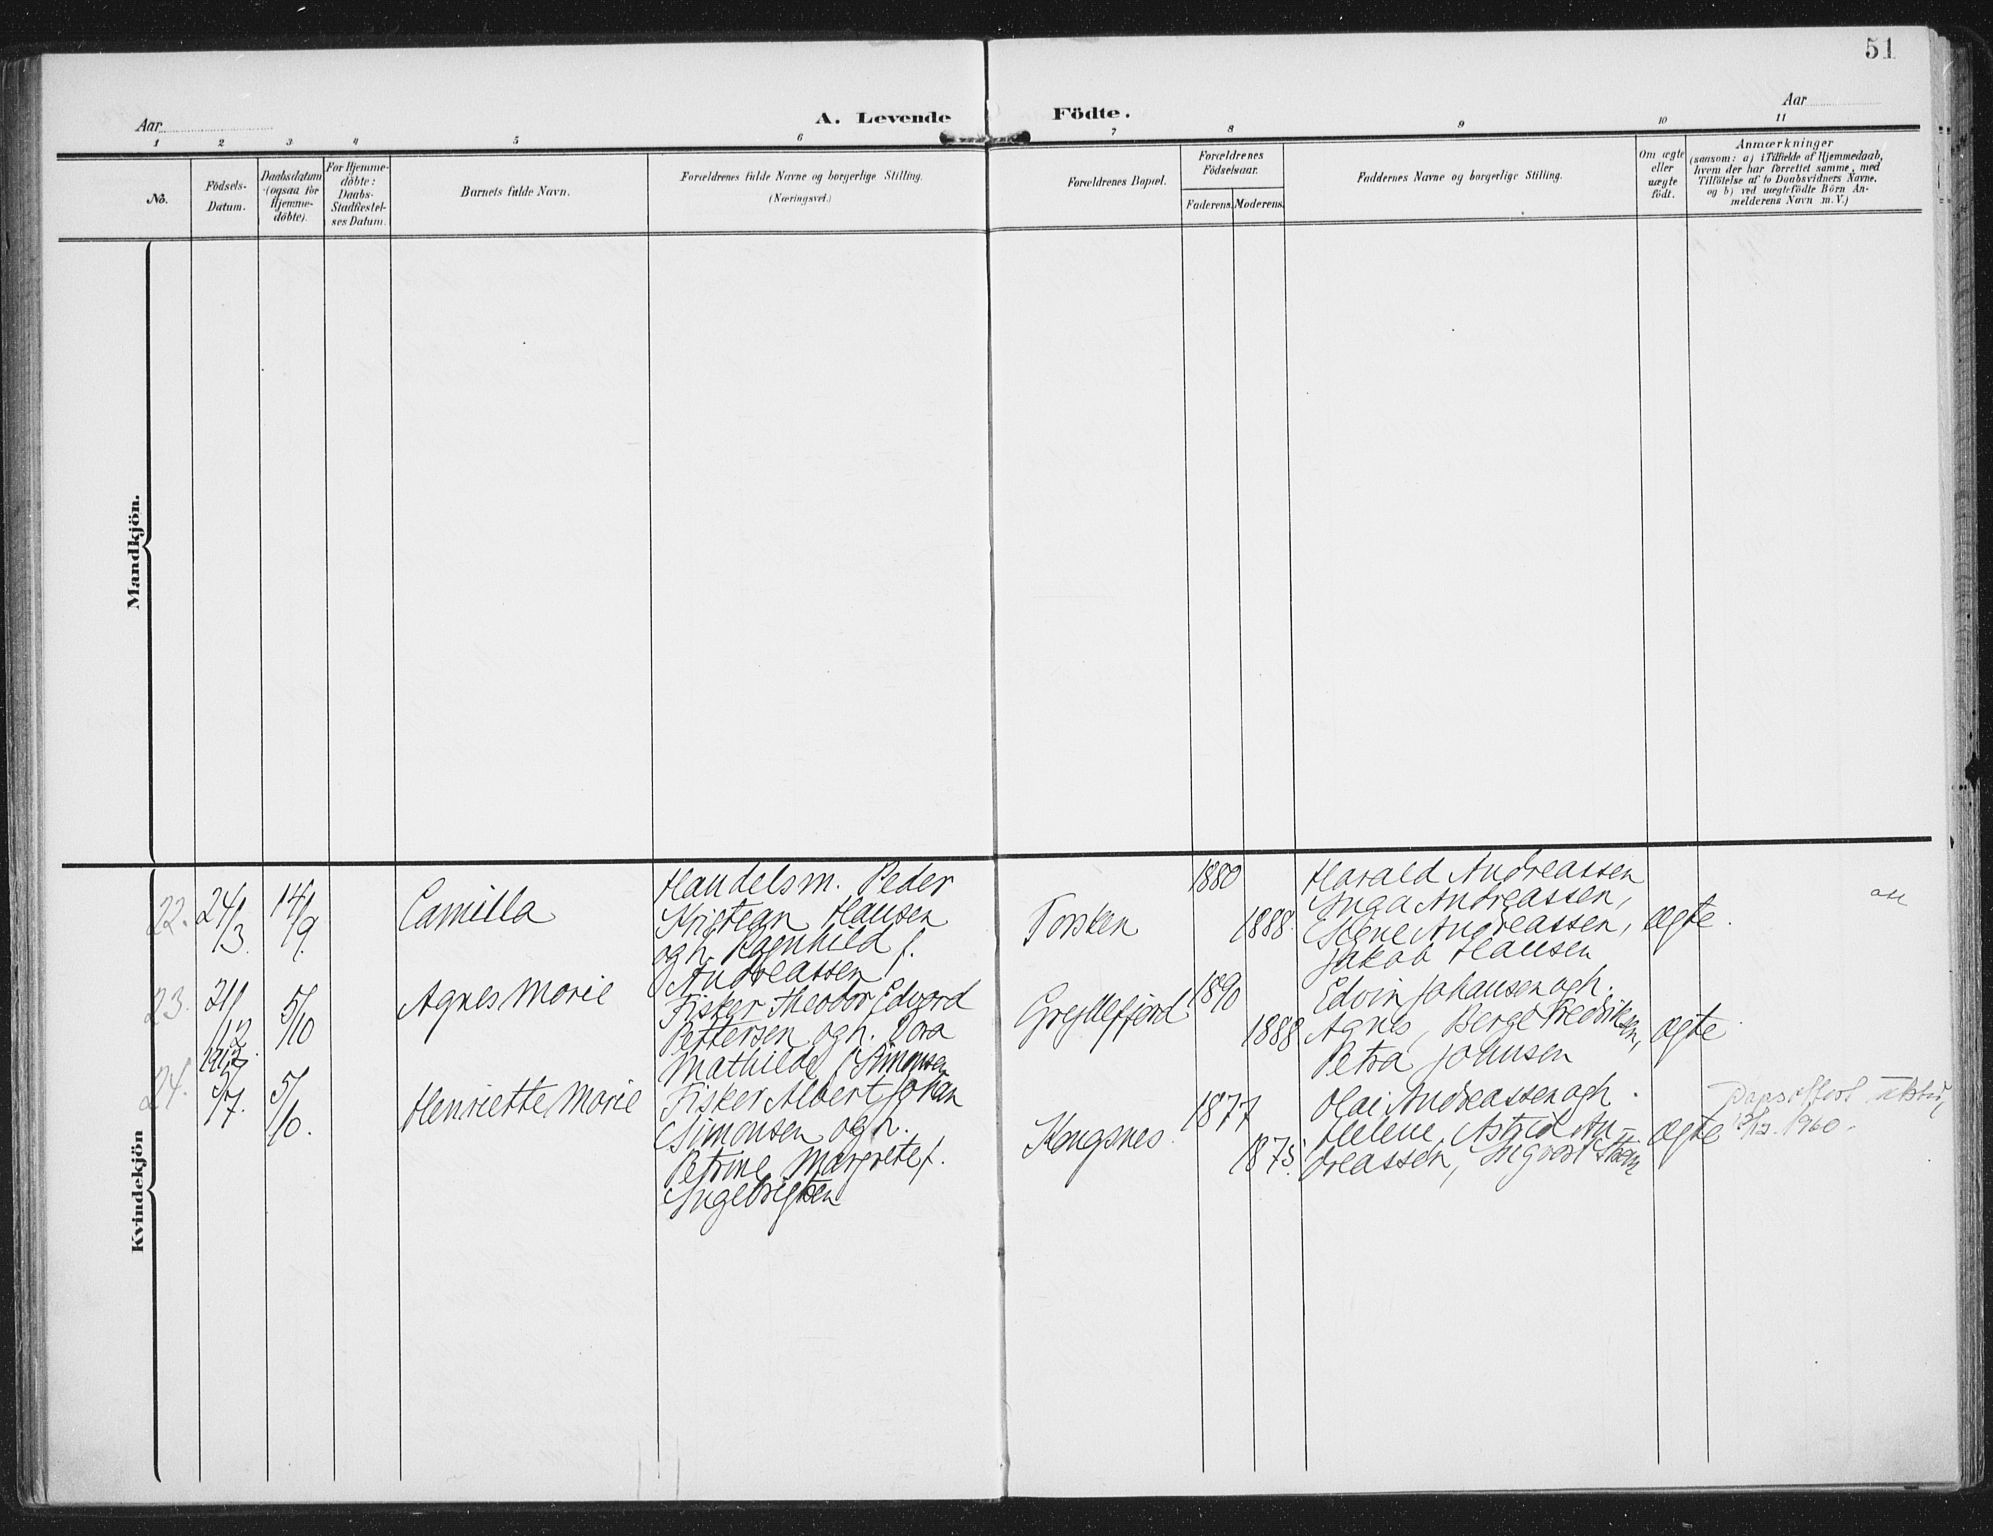 51
Aar
A. Levende Födte.
Aar
1 2 3 4 5 6 7 8 9 10 11
No.
Födsels-
Datum.
Daabsdatum
(ogsaa for
Hjemme-
döbte).
For Hjemme-
döbte:
Daabs-
Stadfæstel-
ses Datum.
Barnets fulde Navn.
Forældrenes fulde Navne og borgerlige Stilling.
(Næringsvei.)
Forældrenes Bopæl.
Forældrenes
Födselsaar.
Faderens. Moderens.
Faddernes Navne og borgerlige Stilling.
Om ægte
eller
uægte
födt.
Anmærkninger
(saasom: a) i Tilfælde af Hjemmedaab,
hvem der har forrettet samme, med
Tilföielse af to Daabsvidners Navne.
og b) ved uægtefödte Börn An-
melderens Navn m. V.)
Mandkjön.
Kvindekjön
22.
24/
/3.
14/
/9.
Camilla
Handelsm. Peder
Kristian Hansen
og h. Ragnhild f.
Andreassen
Torsken
1880
1888.
Harald Andreassen
Inga Andreassen,
Signe Andreassen,
Jakob Hansen
Ægte.
23.
21/
/12
1912.
5/
/10
Agnes Marie
Fisker Theodor Edvard
Pettersen og h. Dora
Mathilde f. Simonsen
Gryllefjord
1890
1888
Edvin Johansen og h.
Agnes, Berge Fredriksen,
Petra Johnsen
Ægte
24.
5/
/7.
5/
/10.
Henriette Marie
Fisker Albert Johan
Simonsen og h.
Petrine Margrete f.
Ingebrigtsen
Kongsnes
1877
1875.
Olai Andreassen og h.
Helene, Astrid An-
dreassen, Ingvart
Ægte
1960.